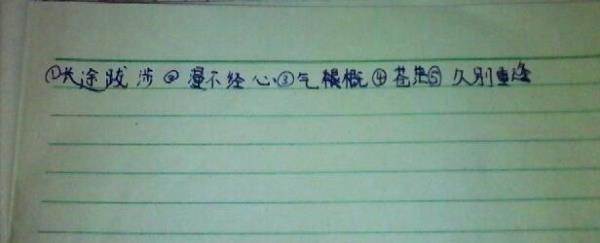 ①长途跋涉②漫不经心③气概④苍⑤久别重逢